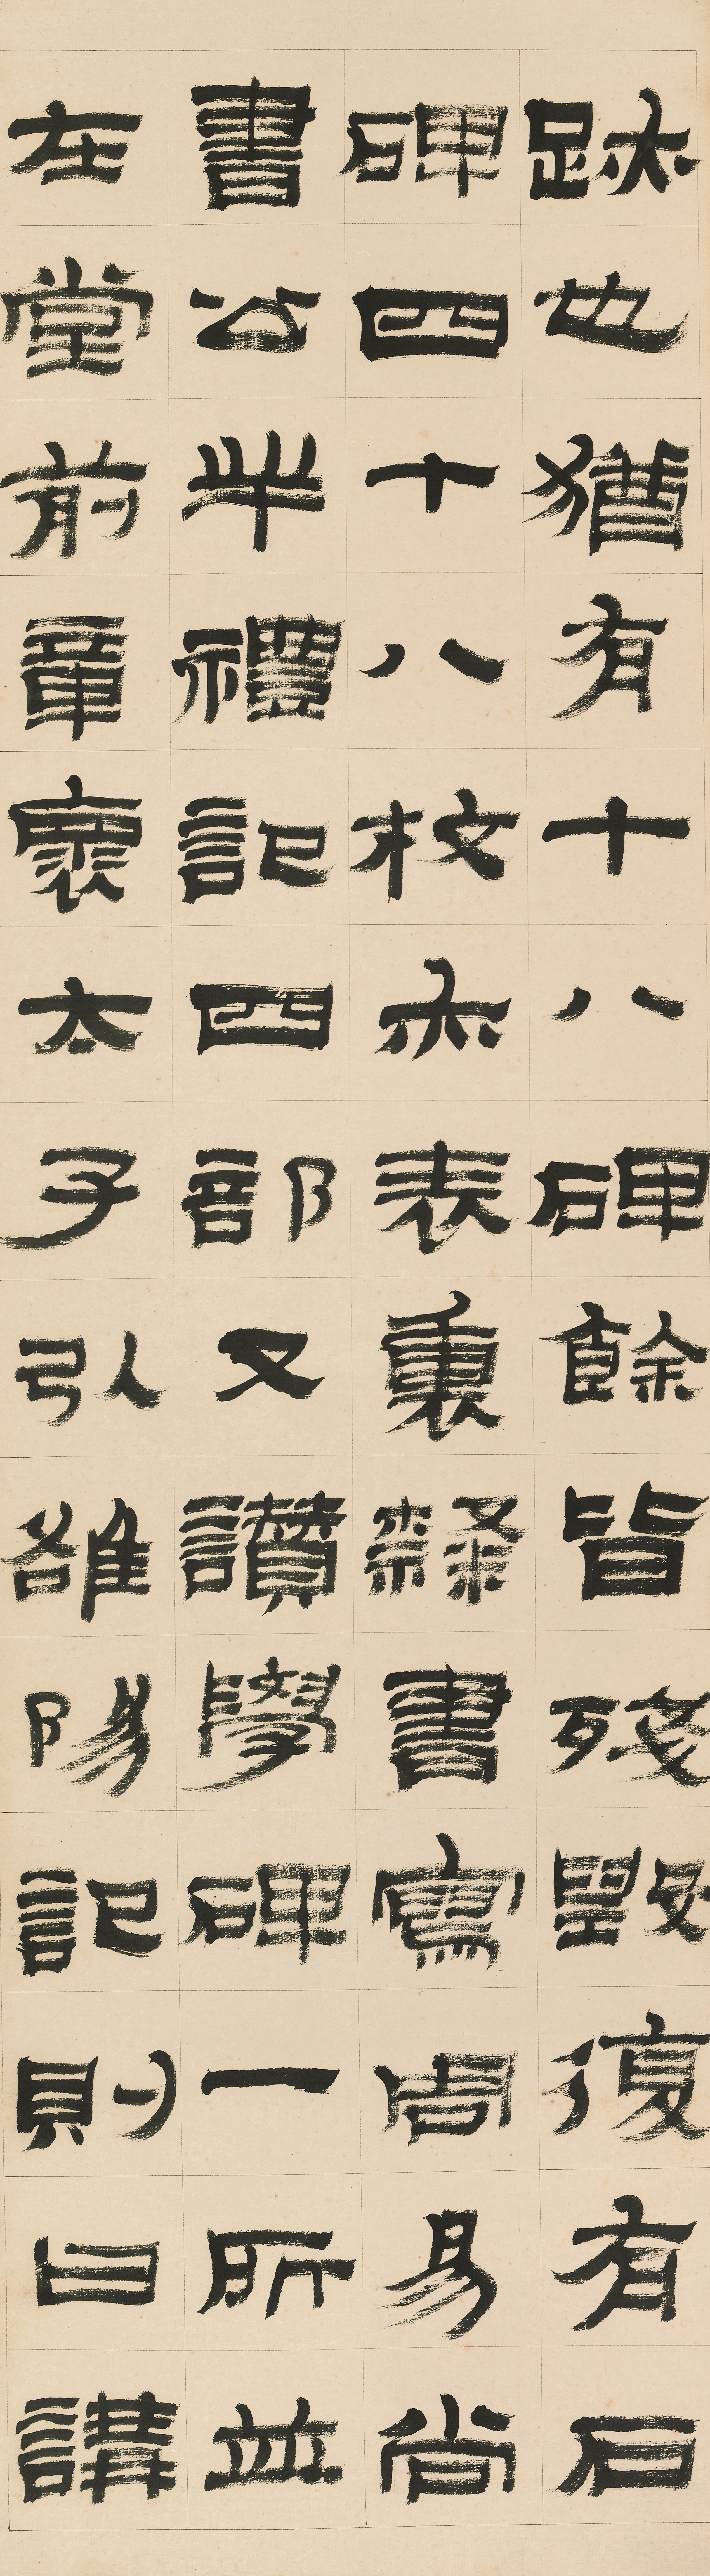 跡也猶有十八碑餘皆殘毀復有石
碑四十八枚亦表裏隸書寫周易尚
書公羊禮記四部又讚學碑一所並
在堂前章懷太子引雒陽記則曰講